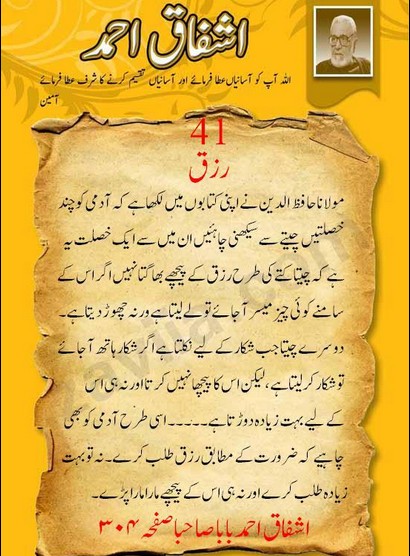 اشفاق احمد
اللہ آپ کو آسانیاں عطا فرمائے اور آسانیاں تقسیم کرنے کا شرف عطا فرمائے
آمین
41
رزق
مولانا حافظ الدین نے اپنی کتابوں میں لکھا ہے کہ آدمی کو چند
خصلتیں چیتے سے سیکھنی چاہئیں ان میں سے ایک خصلت یہ
ہے کہ چیتا کتے کی طرح رزق کے پیچھے بھاگتا نہیں اگر اس کے
سامنے کوئی چیز میسر آ جائے تو لے لیتا ہے ورنہ چھوڑ دیتا ہے۔
دوسرے چیتا جب شکار کے لیے نکلتا ہے اگر شکار ہاتھ آ جائے
تو شکار کر لیتا ہے، لیکن اس کا پیچھا نہیں کرتا اور نہ ہی اس
کے لیے بہت زیادہ دوڑتا ہے۔۔۔۔۔ اسی طرح آدمی کو بھی
چاہیے کہ ضرورت کے مطابق رزق طلب کرے۔ نہ تو بہت
زیادہ طلب کرے اور نہ ہی اس کے پیچھے مارا مارا پڑے۔
اشفاق احمد بابا صاحبا صفحہ ۳۰۴